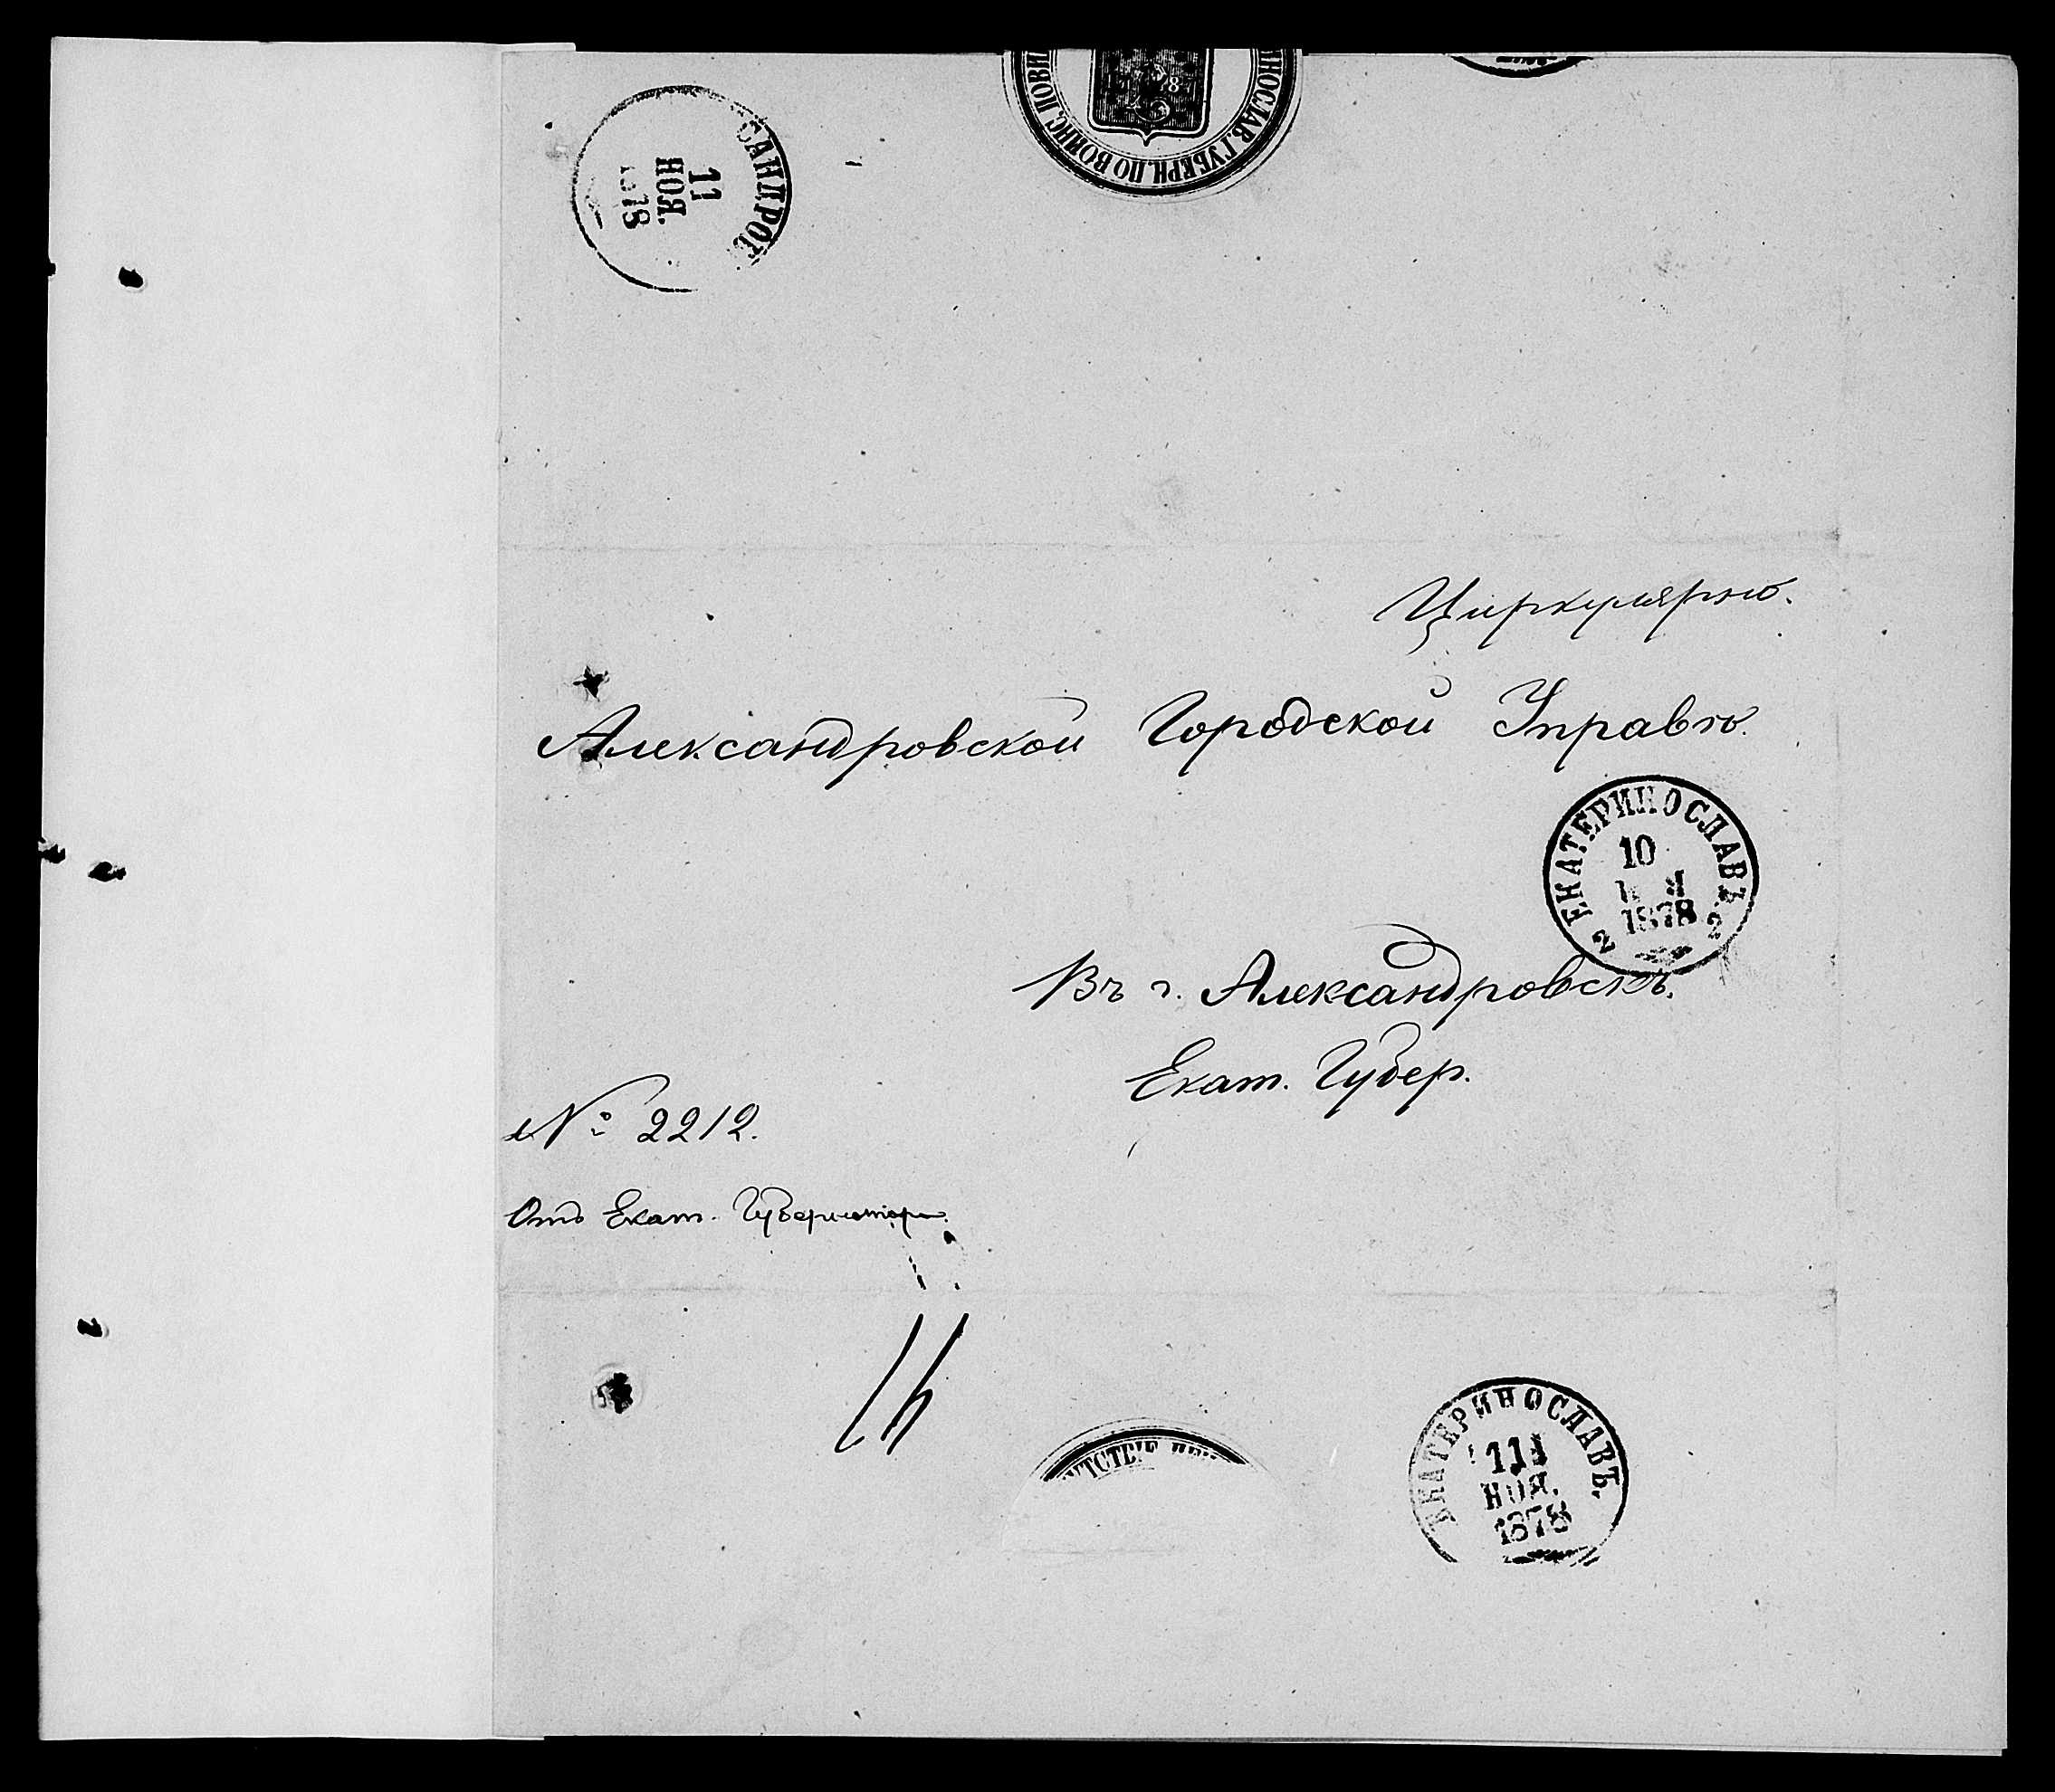 НОСЛАВ. ГУБЕРН. ПО ВОИНС. ПОВИ
САНДРОВ
11
НОЯ.
1878
Циркулярно.
Александровской Городской Управѣ.
ЕКАТЕРИНОСЛАВЪ.
10
НОЯ
1878
2 2
Въ г. Александровскъ.
Екат. Губер.
№ 2212.
Отъ Екат. Губернатора.
ЕКАТЕРИНОСЛАВЪ.
11
НОЯ.
1878